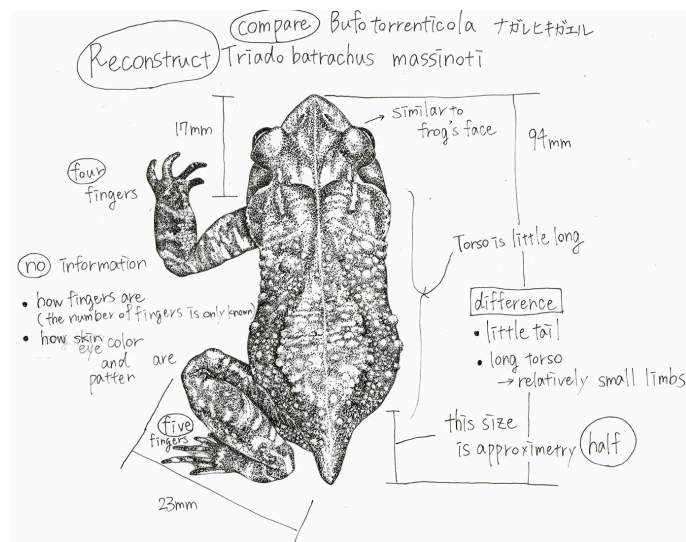 compare Bufo torrenticola ナガレヒキガエル
Reconstruct Triado batrachus massinoti
17mm
similar to
frog's face
94mm
four
fingers
Torso is little long
no information
• how fingers are
(the number of fingers is only known)
• how skin color
eye
and are
patter
difference
• little tail
• long torso
→ relatively small limbs
five
fingers
this size
is approximetry half
23mm